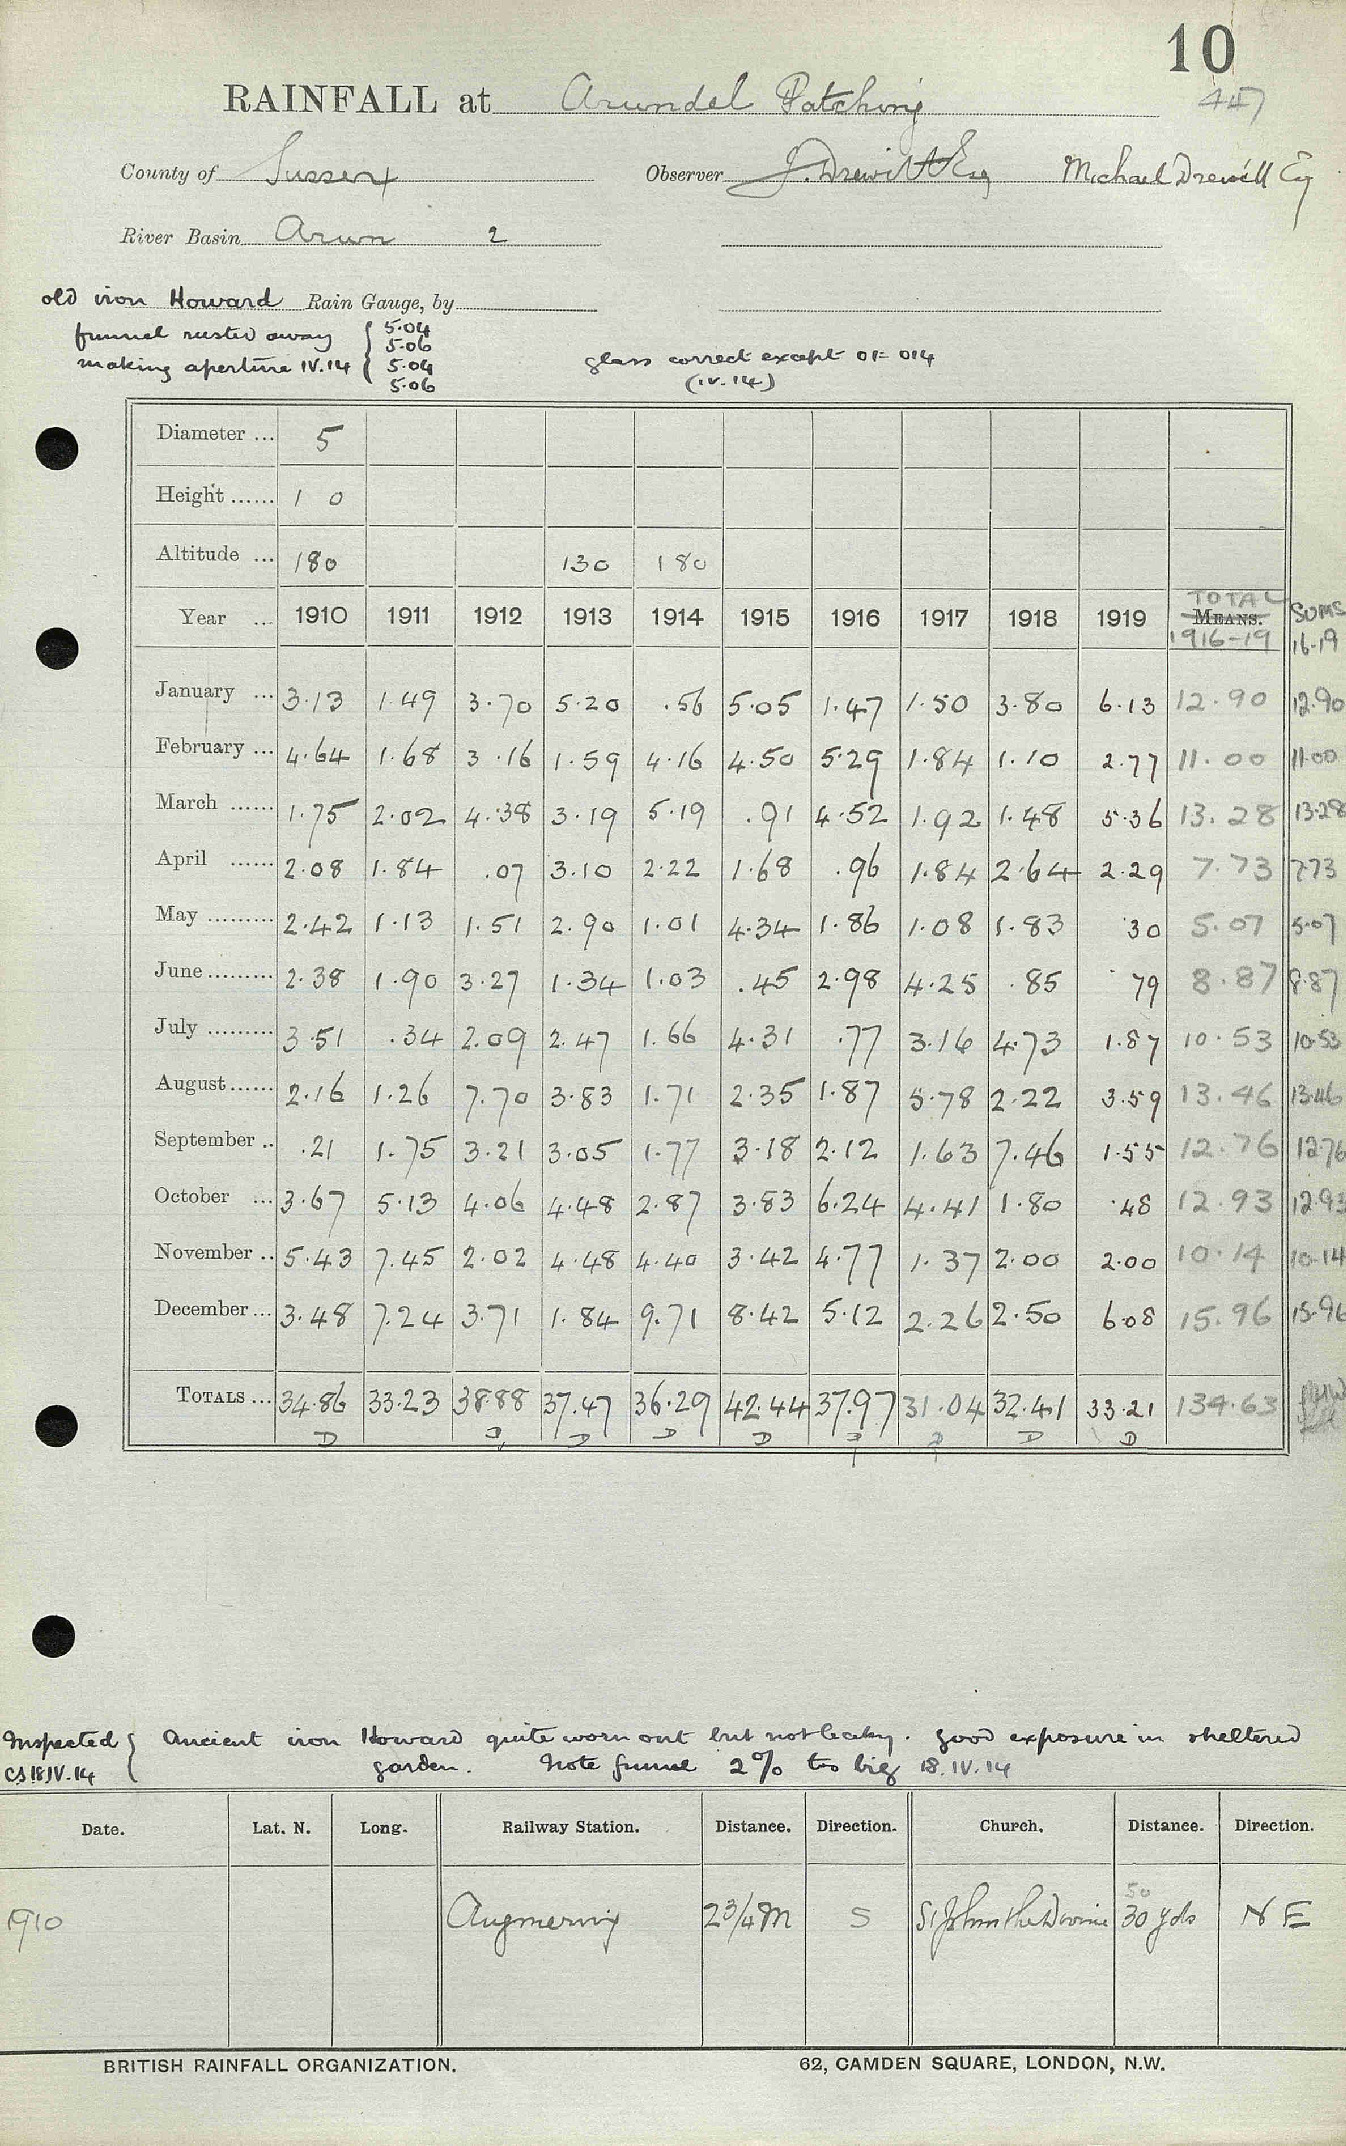 10
RAINFALL at Arundel Patching 447
County of Sussex Observer J. Drewitt Esq Michael Drewitt Esq
River Basin Arun 2
old iron Howard Rain Gauge, by
funnel rusted away { 5.04
5.06
making aperture IV.14 { 5.04
5.06
glass correct except 01 = 014
(IV.14)
Diameter ... 5
Height ...... 1 0
Altitude ... 180 130 180
Year ... 1910 1911 1912 1913 1914 1915 1916 1917 1918 1919 MEANS. TOTAL 1916-19 SUMS 16-19
January ... 3.13 1.49 3.70 5.20 .56 5.05 1.47 1.50 3.80 6.13 12.90 12.90
February ... 4.64 1.68 3.16 1.59 4.16 4.50 5.29 1.84 1.10 2.77 11.00 11.00
March ...... 1.75 2.02 4.38 3.19 5.19 .91 4.52 1.92 1.48 5.36 13.28 13.28
April ...... 2.08 1.84 .07 3.10 2.22 1.68 .96 1.84 2.64 2.29 7.73 7.73
May ......... 2.42 1.13 1.51 2.90 1.01 4.34 1.86 1.08 1.83 .30 5.07 5.07
June ......... 2.38 1.90 3.27 1.34 1.03 .45 2.98 4.25 .85 .79 8.87 8.87
July ......... 3.51 .34 2.09 2.47 1.66 4.31 .77 3.16 4.73 1.87 10.53 10.53
August ...... 2.16 1.26 7.70 3.83 1.71 2.35 1.87 5.78 2.22 3.59 13.46 13.46
September .. .21 1.75 3.21 3.05 1.77 3.18 2.12 1.63 7.46 1.55 12.76 12.76
October ... 3.67 5.13 4.06 4.48 2.87 3.83 6.24 4.41 1.80 .48 12.93 12.93
November .. 5.43 7.45 2.02 4.48 4.40 3.42 4.77 1.37 2.00 2.00 10.14 10.14
December ... 3.48 7.24 3.71 1.84 9.71 8.42 5.12 2.26 2.50 6.08 15.96 15.96
TOTALS ... 34.86 33.23 38.88 37.47 36.29 42.44 37.97 31.04 32.41 33.21 134.63
D D D D D D D D D
Inspected { Ancient iron Howard quite worn out but not leaky. good exposure in sheltered
CS 18.IV.14 garden. Note funnel 2% too big 18.IV.14
Date. Lat. N. Long. Railway Station. Distance. Direction. Church. Distance. Direction.
50
1910 Angmering 2 3/4 M S St John the Divine 30 yds N E
BRITISH RAINFALL ORGANIZATION. 62, CAMDEN SQUARE, LONDON, N.W.